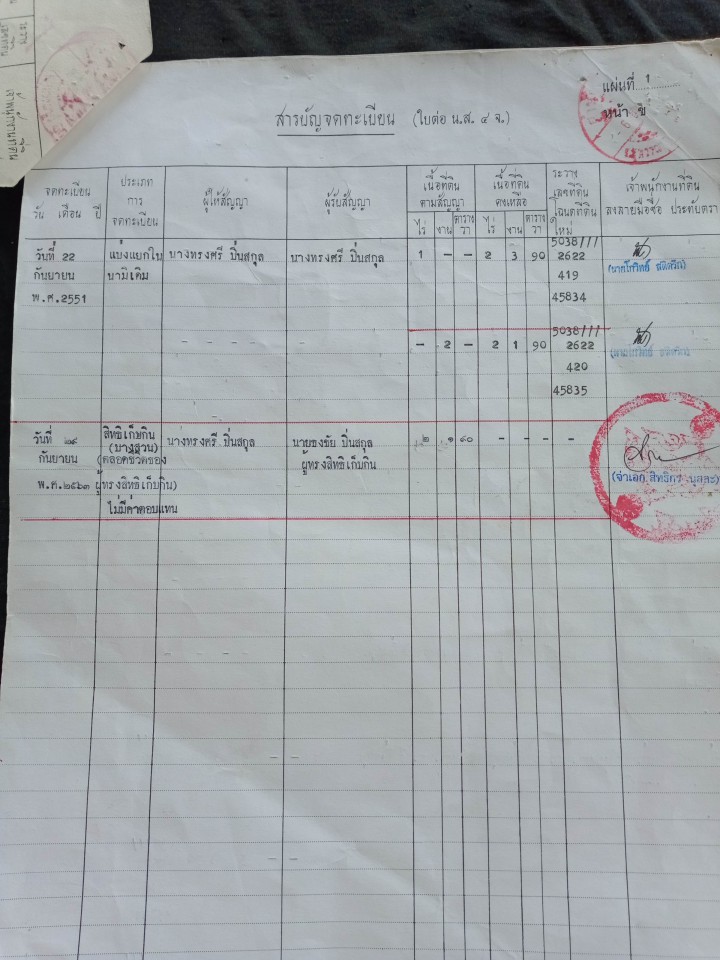 แผ่นที่ 1
หน้า ข
สารบัญจดทะเบียน (ใบต่อ น.ส. ๔ จ.)
จดทะเบียน
วัน เดือน ปี
ประเภท
การ
จดทะเบียน
ผู้ให้สัญญา
ผู้รับสัญญา
เนื้อที่ดิน
ตามสัญญา
ไร่ งาน ตาราง
วา
เนื้อที่ดิน
คงเหลือ
ไร่ งาน ตาราง
วา
ระวาง
เลขที่ดิน
โฉนดที่ดิน
ใหม่
เจ้าพนักงานที่ดิน
ลงลายมือชื่อ ประทับตรา
วันที่ 22
กันยายน
พ.ศ.2551
แบ่งแยกใน
นามเดิม
นางทรงศรี ปิ่นสกุล
นางทรงศรี ปิ่นสกุล
1 - - 2 3 90
5038 III
2622
419
45834
- 2 - 2 1 90
5038 III
2622
420
45835
วันที่ ๒๙
กันยายน
พ.ศ.๒๕๖๓
สิทธิเก็บกิน
(บางส่วน)
(ตลอดชีวิตของ
ผู้ทรงสิทธิเก็บกิน)
ไม่มีค่าตอบแทน
นางทรงศรี ปิ่นสกุล
นายธงชัย ปิ่นสกุล
ผู้ทรงสิทธิเก็บกิน
๒ ๑ ๙๐ - - - -